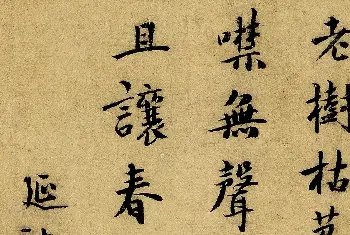 老樹枯
噤無聲
且讓春
延